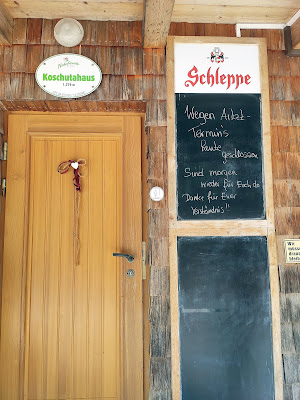 Koschutahaus
1.279 m
Schleppe
Wegen Arzt-
Termins
heute
geschlossen
Sind morgen
wieder für Euch da
Danke für Euer
Verständnis!!
Wir